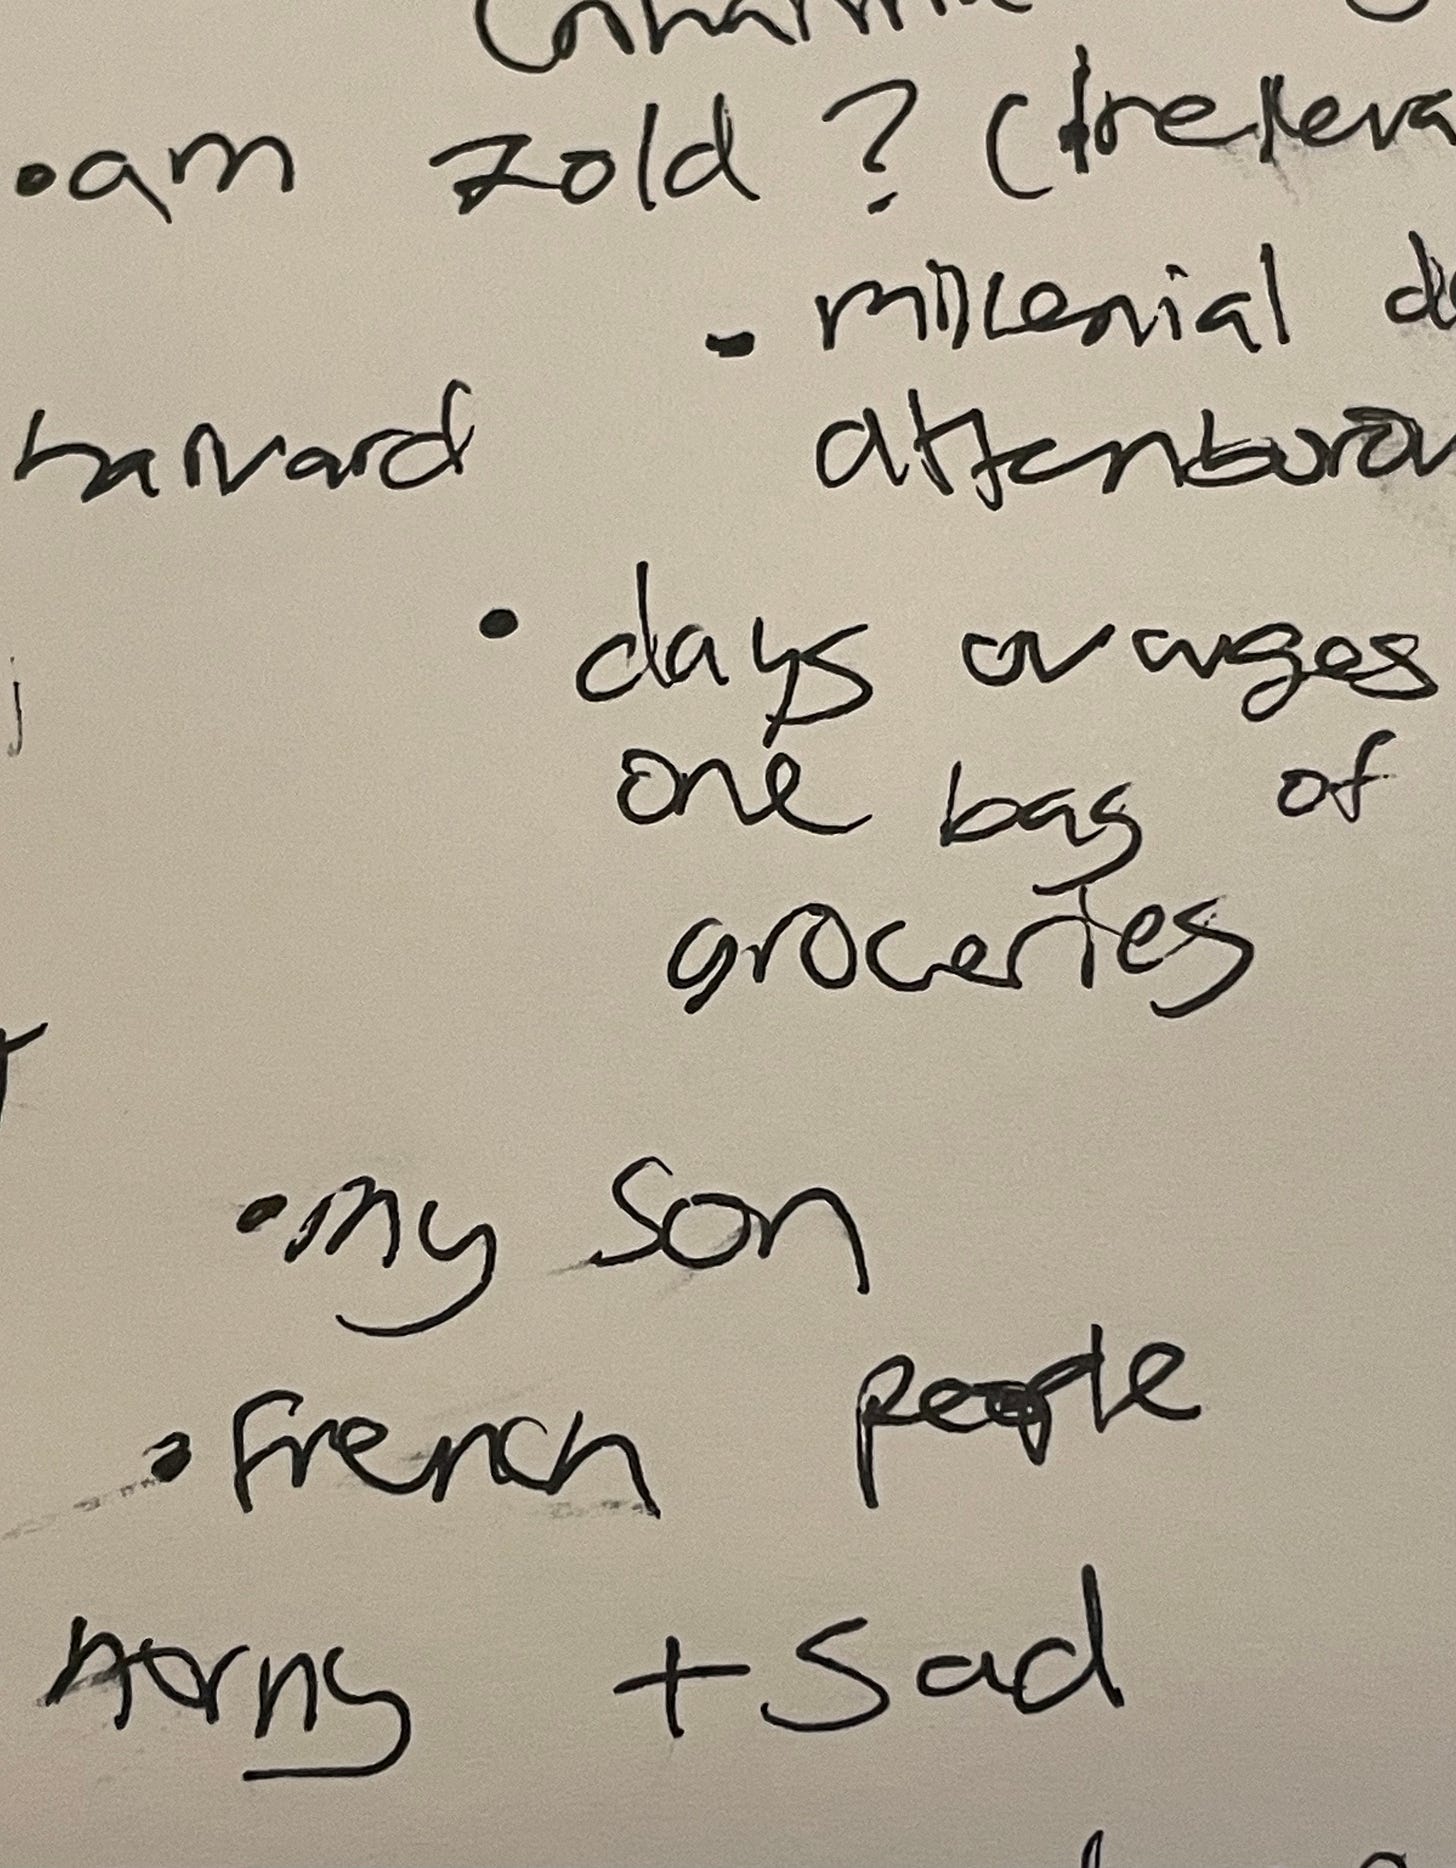 • am zold ? (Irreleva
- millenial da
harvard attenborou
• days oranges
one bag of
groceries
• my son
• french people
horny + sad